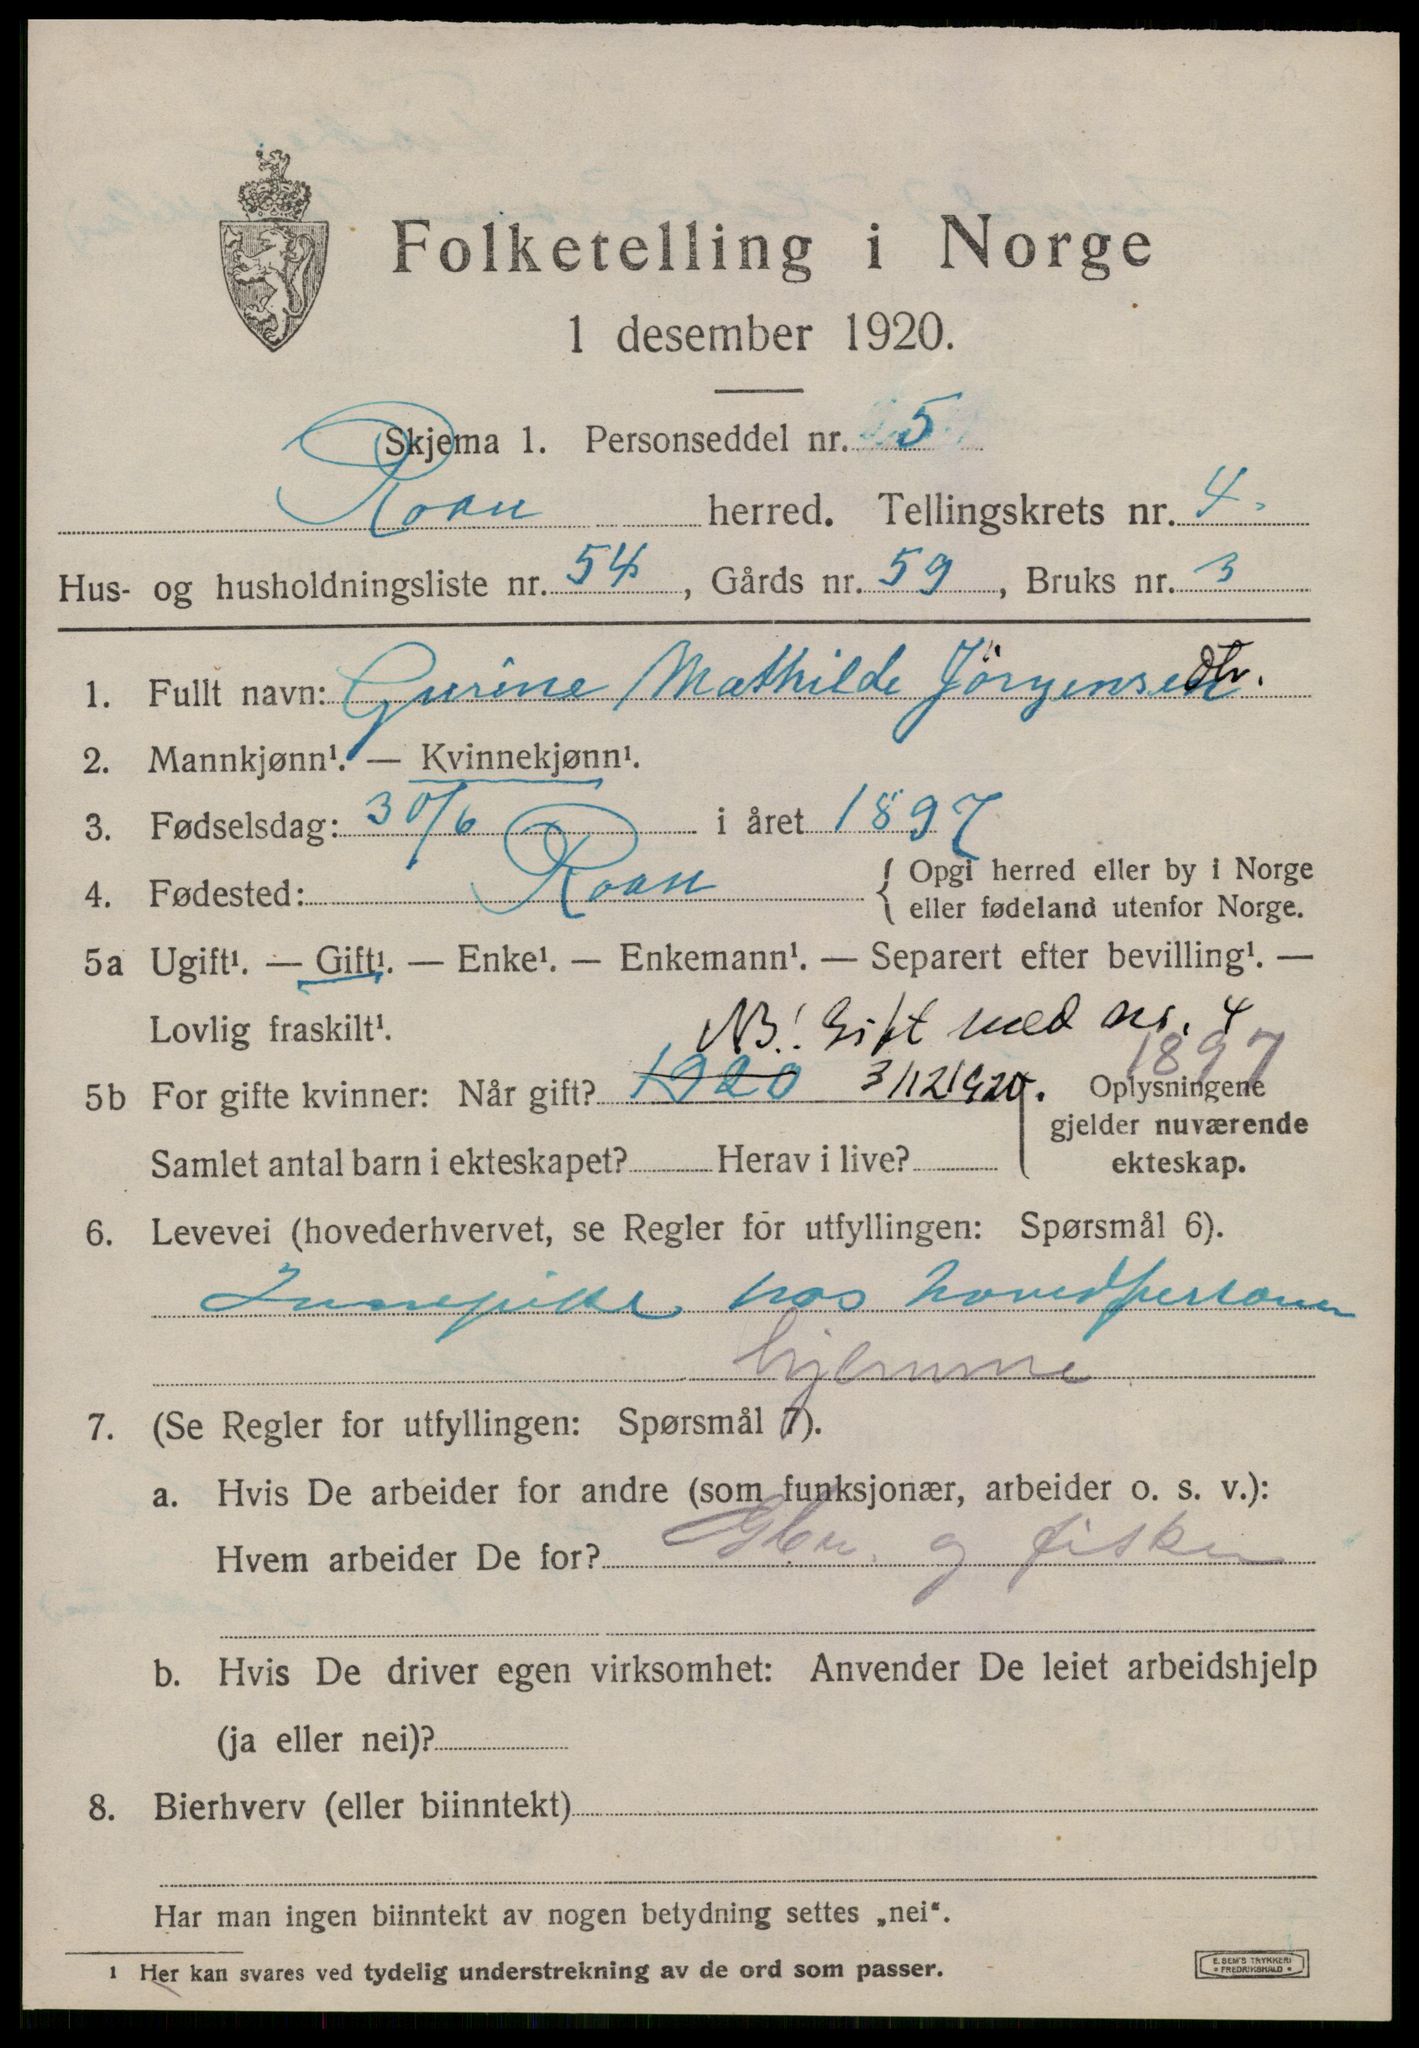 Folketelling i Norge
1 desember 1920.
Skjema 1. Personseddel nr. 5
Roan herred. Tellingskrets nr. 4.
Hus- og husholdningsliste nr. 54, Gårds nr. 59, Bruks nr. 3
1. Fullt navn: Gurine Mathilde Jörgensen dtr.
2. Mannkjønn¹. — Kvinnekjønn¹.
3. Fødselsdag: 30/6 i året 1897
4. Fødested: Roan { Opgi herred eller by i Norge
eller fødeland utenfor Norge.
5a Ugift¹. — Gift¹. — Enke¹. — Enkemann¹. — Separert efter bevilling¹. —
Lovlig fraskilt¹. NB! Gift med nr. 4
1897
5b For gifte kvinner: Når gift? 1920 3/12 1920. Oplysningene
gjelder nuværende
Samlet antal barn i ekteskapet? Herav i live? ekteskap.
6. Levevei (hovederhvervet, se Regler for utfyllingen: Spørsmål 6).
Innepike hos hovedpersonen
hjemme
7. (Se Regler for utfyllingen: Spørsmål 7).
a. Hvis De arbeider for andre (som funksjonær, arbeider o. s. v.):
Hvem arbeider De for? og fisker
b. Hvis De driver egen virksomhet: Anvender De leiet arbeidshjelp
(ja eller nei)?
8. Bierhverv (eller biinntekt)
Har man ingen biinntekt av nogen betydning settes „nei“.
¹ Her kan svares ved tydelig understrekning av de ord som passer.
E. SEM'S TRYKKERI
• FREDRIKSHALD •